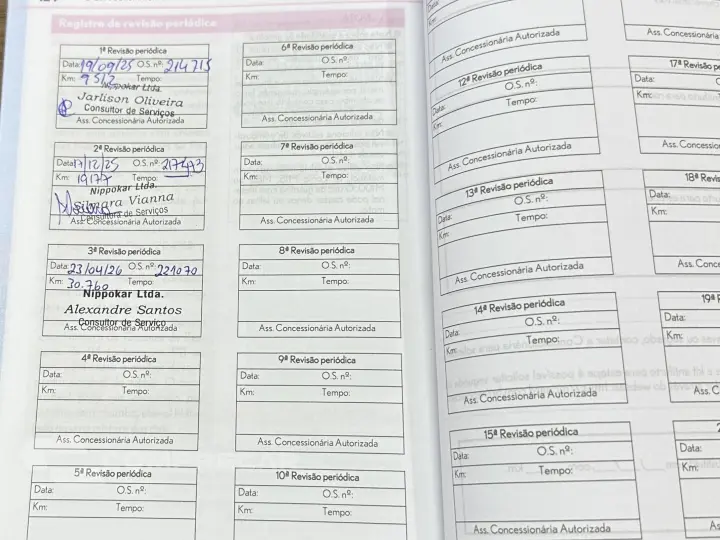 Registro de revisão periódica
1ª Revisão periódica
Data: 19/09/25 O.S. nº: 214715
Km: 9512 Tempo:
Nippokar Ltda.
Jarlison Oliveira
Consultor de Serviços
Ass. Concessionária Autorizada
2ª Revisão periódica
Data: 17/12/25 O.S. nº:
Km: 19177 Tempo:
Nippokar Ltda.
Silmara Vianna
Consultora de Serviços
Ass. Concessionária Autorizada
3ª Revisão periódica
Data: 23/04/26 O.S. nº: 221070
Km: 30.760 Tempo:
Nippokar Ltda.
Alexandre Santos
Consultor de Serviço
Ass. Concessionária Autorizada
4ª Revisão periódica
Data: O.S. nº:
Km: Tempo:
Ass. Concessionária Autorizada
5ª Revisão periódica
Data: O.S. nº:
Km: Tempo:
6ª Revisão periódica
Data: O.S. nº:
Km: Tempo:
Ass. Concessionária Autorizada
7ª Revisão periódica
Data: O.S. nº:
Km: Tempo:
Ass. Concessionária Autorizada
8ª Revisão periódica
Data: O.S. nº:
Km: Tempo:
Ass. Concessionária Autorizada
9ª Revisão periódica
Data: O.S. nº:
Km: Tempo:
Ass. Concessionária Autorizada
10ª Revisão periódica
Data: O.S. nº:
Km: Tempo:
Km:
Ass. Concessionária Autorizada
12ª Revisão periódica
Data: O.S. nº:
Km: Tempo:
Ass. Concessionária Autorizada
13ª Revisão periódica
Data: O.S. nº:
Km: Tempo:
Ass. Concessionária Autorizada
14ª Revisão periódica
Data: O.S. nº:
Km: Tempo:
Ass. Concessionária Autorizada
15ª Revisão periódica
Data: O.S. nº:
Km: Tempo:
Ass. Concessionária Autorizada
Ass. Concessionária
17ª Revisão
Data:
Km:
Ass.
18ª
Data:
Km:
Ass.
19ª
Data:
Km:
Ass.
Data:
Km: